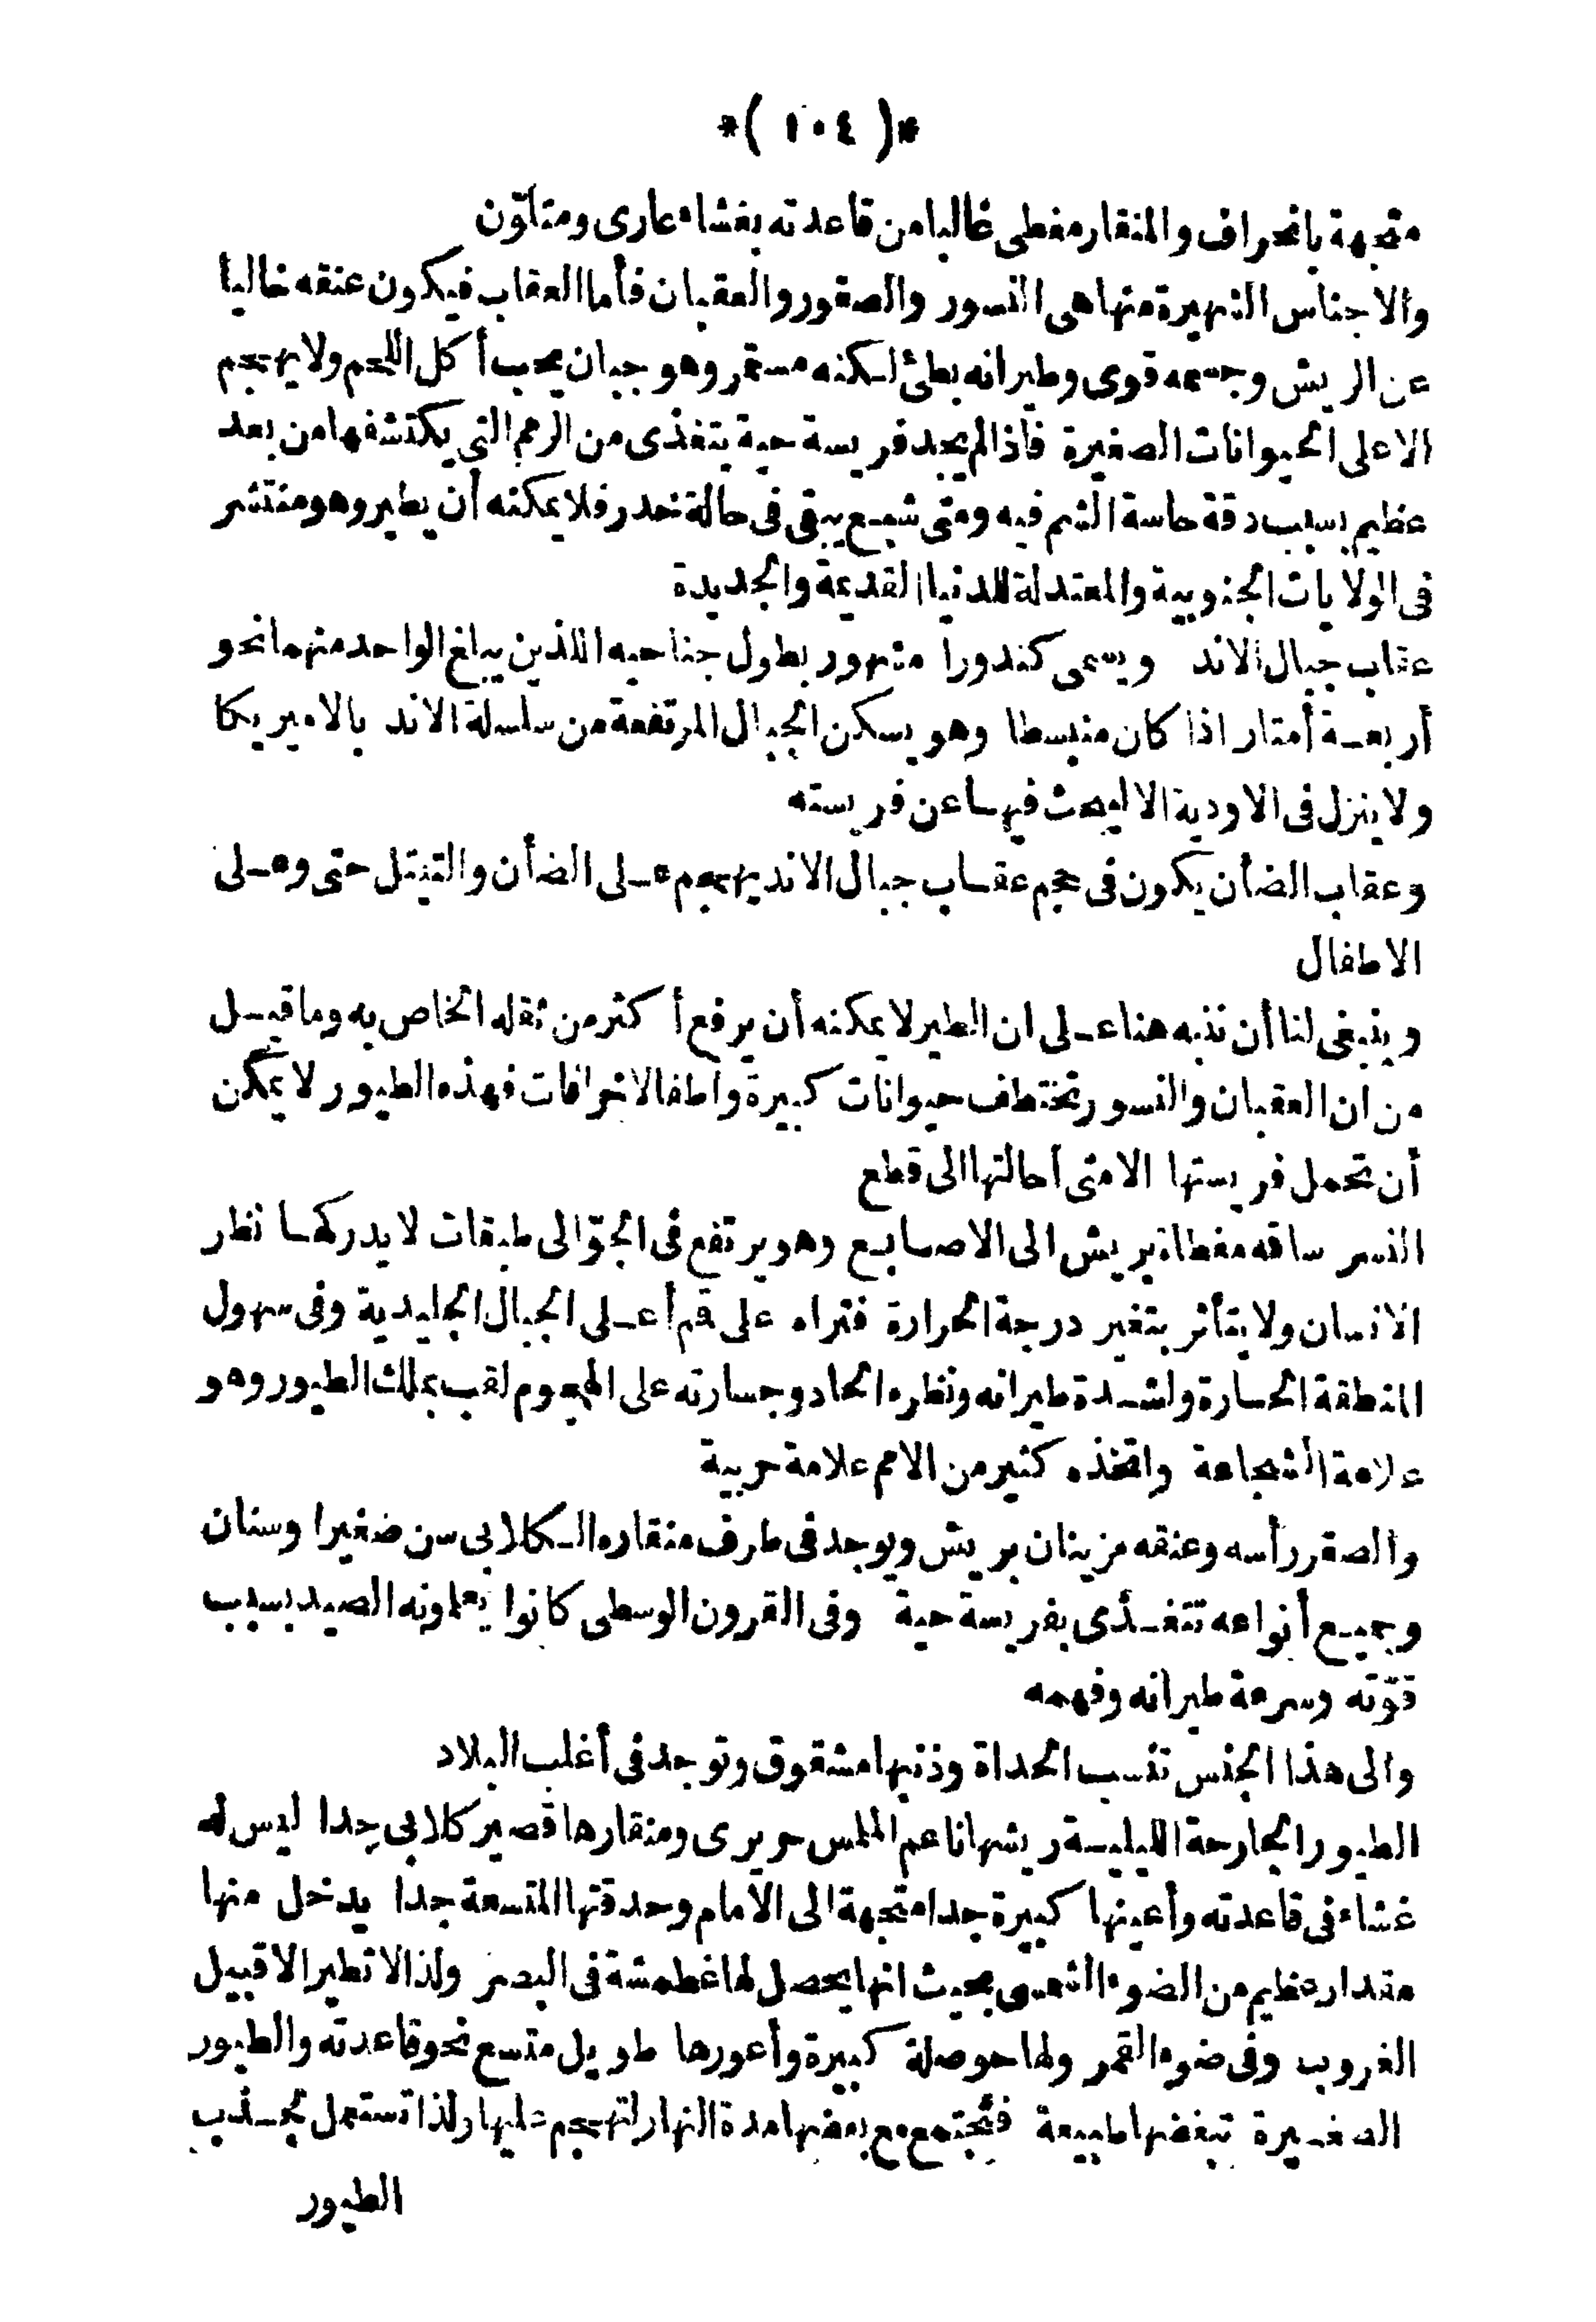 *( ١٠٤ )*
متجهة بانحراف والمنقار مغطى غالبا من قاعدته بغشاء عارى ومتلوّن
والاجناس الشهيرة منها هى النسور والصقور والعقبان فأما العقاب فيكون عنقه خاليا
عن الريش وجسمه قوى وطيرانه بطئ لكنه مستمر وهو جبان يحب أكل اللحم ولا يهجم
الاعلى الحيوانات الصغيرة فاذا لم يجد فريسة حية يتغذى من الرمم التى يكتشفها من بعد
عظيم بسبب دقة حاسة الشم فيه ومتى شبع يبقى فى حالة خدر فلا يمكنه أن يطير وهو منتشر
فى الولايات الجنوبية والمعتدلة للدنيا القديمة والجديدة
عقاب جبال الاند ويسمى كندورا مشهور بطول جناحيه اللذين يبلغ الواحد منهما نحو
أربعة أمتار اذا كان منبسطا وهو يسكن الجبال المرتفعة من سلسلة الاند بالاميريكا
ولا ينزل فى الاودية الا ليبحث فيها عن فريسته
وعقاب الضأن يكون فى حجم عقاب جبال الاند يهجم على الضأن والتيتل حتى وعلى
الاطفال
وينبغى لنا أن ننبه هنا على ان الطير لا يمكنه أن يرفع أكثر من ثقله الخاص به وما قيل
من ان العقبان والنسور تختطف حيوانات كبيرة وأطفالا خرافات فهذه الطيور لا يمكن
أن تحمل فريستها الا متى أحالتها الى قطع
النسر ساقه مغطاة بريش الى الاصابع وهو يرتفع فى الجوّ الى طبقات لا يدركها نظر
الانسان ولا يتأثر بتغير درجة الحرارة فتراه على قم أعلى الجبال الجليدية وفى سهول
المنطقة الحارة ولشدة طيرانه ونظره الحاد وجسارته على الهجوم لقب بملك الطيور وهو
علامة الشجاعة واتخذه كثير من الامم علامة حربية
والصقر رأسه وعنقه مزينان بريش ويوجد فى طرف منقاره الكلابى سن صغيرا وسنان
وجميع أنواعه تتغذى بفريسة حية وفى القرون الوسطى كانوا يعلمونه الصيد بسبب
قوّته وسرعة طيرانه وفهمه
والى هذا الجنس تنسب الحداة وذنبها مشقوق وتوجد فى أغلب البلاد
الطيور الجارحة الليلية ريشها ناعم الملمس حريرى ومنقارها قصير كلابى جدا ليس له
غشاء فى قاعدته وأعينها كبيرة جدا متجهة الى الأمام وحدقتها المتسعة جدا يدخل منها
مقدار عظيم من الضوء الشمسى بحيث انها يحصل لها غطمشة فى البصر ولذا لا تطير الا قبيل
الغروب وفى ضوء القمر ولها حوصلة كبيرة وأعورها طويل متسع نحو قاعدته والطيور
الصغيرة تبغضها طبيعة فتجتمع مع بعضها مدة النهار لتهجم عليها ولذا تستعمل لجذب
الطيور